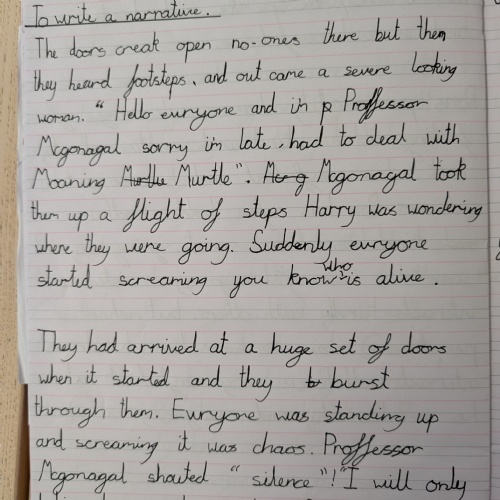 To write a narrative.
The doors creak open no-ones there but then
they heard footsteps, and out came a severe looking
woman. "Hello euryone and im p Proffessor
Mcgonagal sorry im late, had to deal with
Moaning Murtle Murtle". Mc g Mcgonagal took
them up a flight of steps Harry was wondering
where they were going. Suddenly euryone
started screaming you know who is alive.
They had arrived at a huge set of doors
when it started and they to burst
through them. Euryone was standing up
and screaming it was chaos. Proffessor
Mcgonagal shouted "silence"! I will only